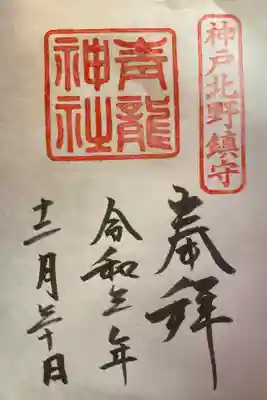 神戸北野鎮守
青龍神社
奉拝
令和三年
十二月三十日